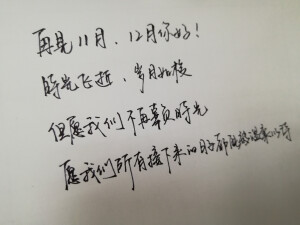 再见11月、12月你好!
时光飞逝、岁月如梭
但愿我们不再辜负时光
愿我们所有接下来的日子都能被温柔以待